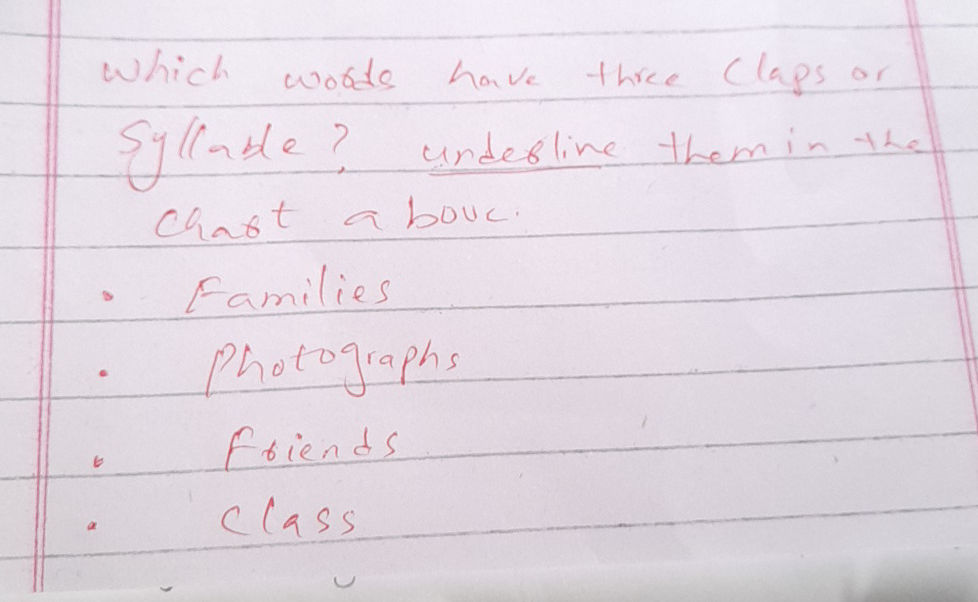 Which words have three Claps or
Syllable? underline them in the
Chart above.
• Families
• Photographs
• Friends
• Class